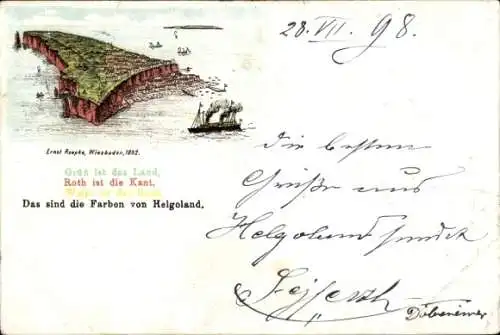 28. VII. 98.
Ernst Roepke, Wiesbaden, 1892.
Grün ist das Land,
Roth ist die Kant,
Das sind die Farben von Helgoland.
die besten
Grüße aus
Helgoland sendet